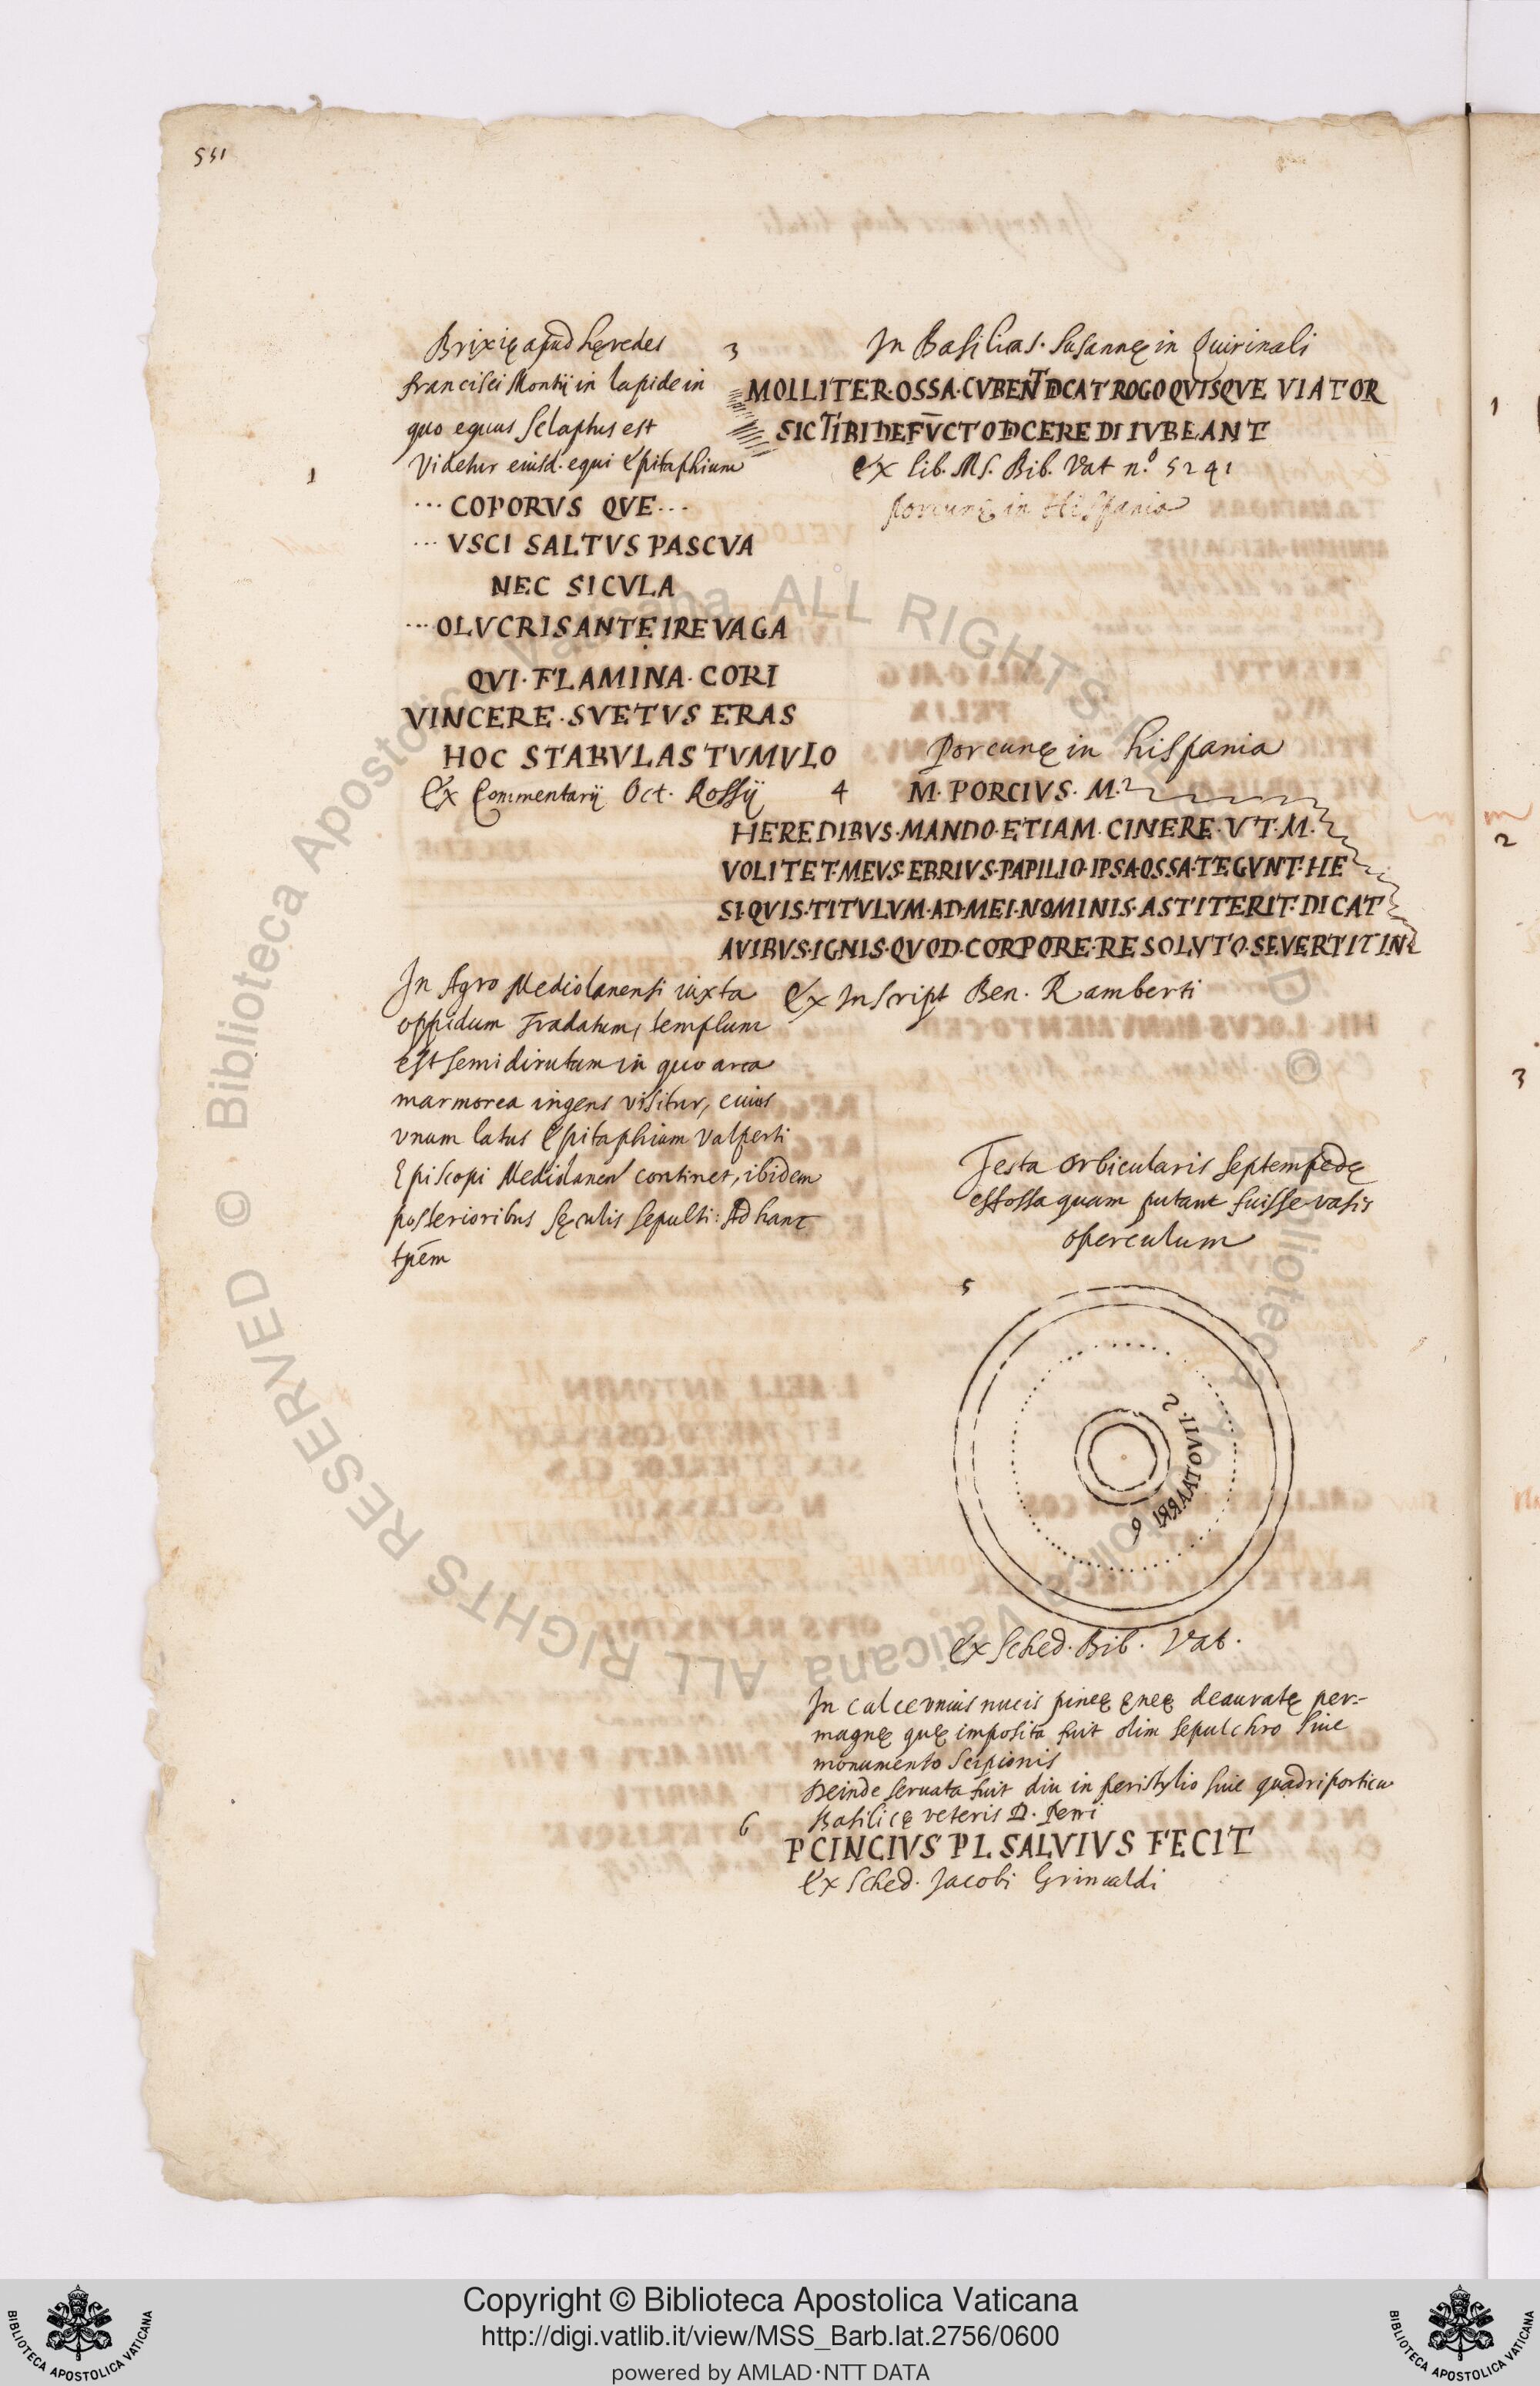 551
Brixię apud hęredes
francisci Montij in lapide in
quo equus sclaptus est
Videtur eiusd. equi Epitaphium
1
... COPORVS QVE...
... VSCI SALTVS PASCVA
NEC SICVLA
...OLVCRIS ANTE IRE VAGA
QVI·FLAMINA·CORI
VINCERE·SVETVS ERAS
HOC STABVLAS TVMVLO
Ex Commentarij Oct. Rossij
In Agro Mediolanensi iuxta
oppidum Tradatum, templum
est semidirutum in quo arca
marmorea ingens visitur, cuius
vnum latus Epitaphium Valperti
Episcopi Mediolanen continet, ibidem
posterioribus sęculis sepulti: Ad hanc
3
In Basilica S. Susannę in Quirinali
MOLLITER·OSSA·CVBENT DCAT ROGO QVISQVE VIATOR
SIC TIBI DEFVCTO DCERE DI IVBEANT
Ex lib. MS. Bib. Vat n.º 5241
porcunę in Hispania
Porcunę in hispania
4
M·PORCIVS·M·
HEREDIBVS·MANDO·ETIAM·CINERE·VT·M·
VOLITET·MEVS·EBRIVS·PAPILIO·IPSA·OSSA·TEGVNT·HE
SI·QVIS·TITVLVM·AD·MEI·NOMINIS·ASTITERIT·DICAT
AVIBVS·IGNIS·QVOD·CORPORE·RESOLVTO·SE VERTIT IN
Ex Inscript Ben. Ramberti
Testa orbicularis septempedę
effossa quam putant fuisse vasis
operculum
5
Ex Sched. Bib. Vat.
In calce vnius nucis pineę ęneę deauratę per-
magnę quę imposita fuit olim sepulchro siue
monumento Scipionis
Deinde seruata fuit diu in peristylio siue quadriporticu
Basilicę veteris D. Petri
6
P CINCIVS P L SALVIVS FECIT
Ex Sched. Jacobi Grimaldi
1
2
3
Copyright © Biblioteca Apostolica Vaticana
http://digi.vatlib.it/view/MSS_Barb.lat.2756/0600
powered by AMLAD·NTT DATA
BIBLIOTECA APOSTOLICA VATICANA
BIBLIOTECA APOSTOLICA VATICANA